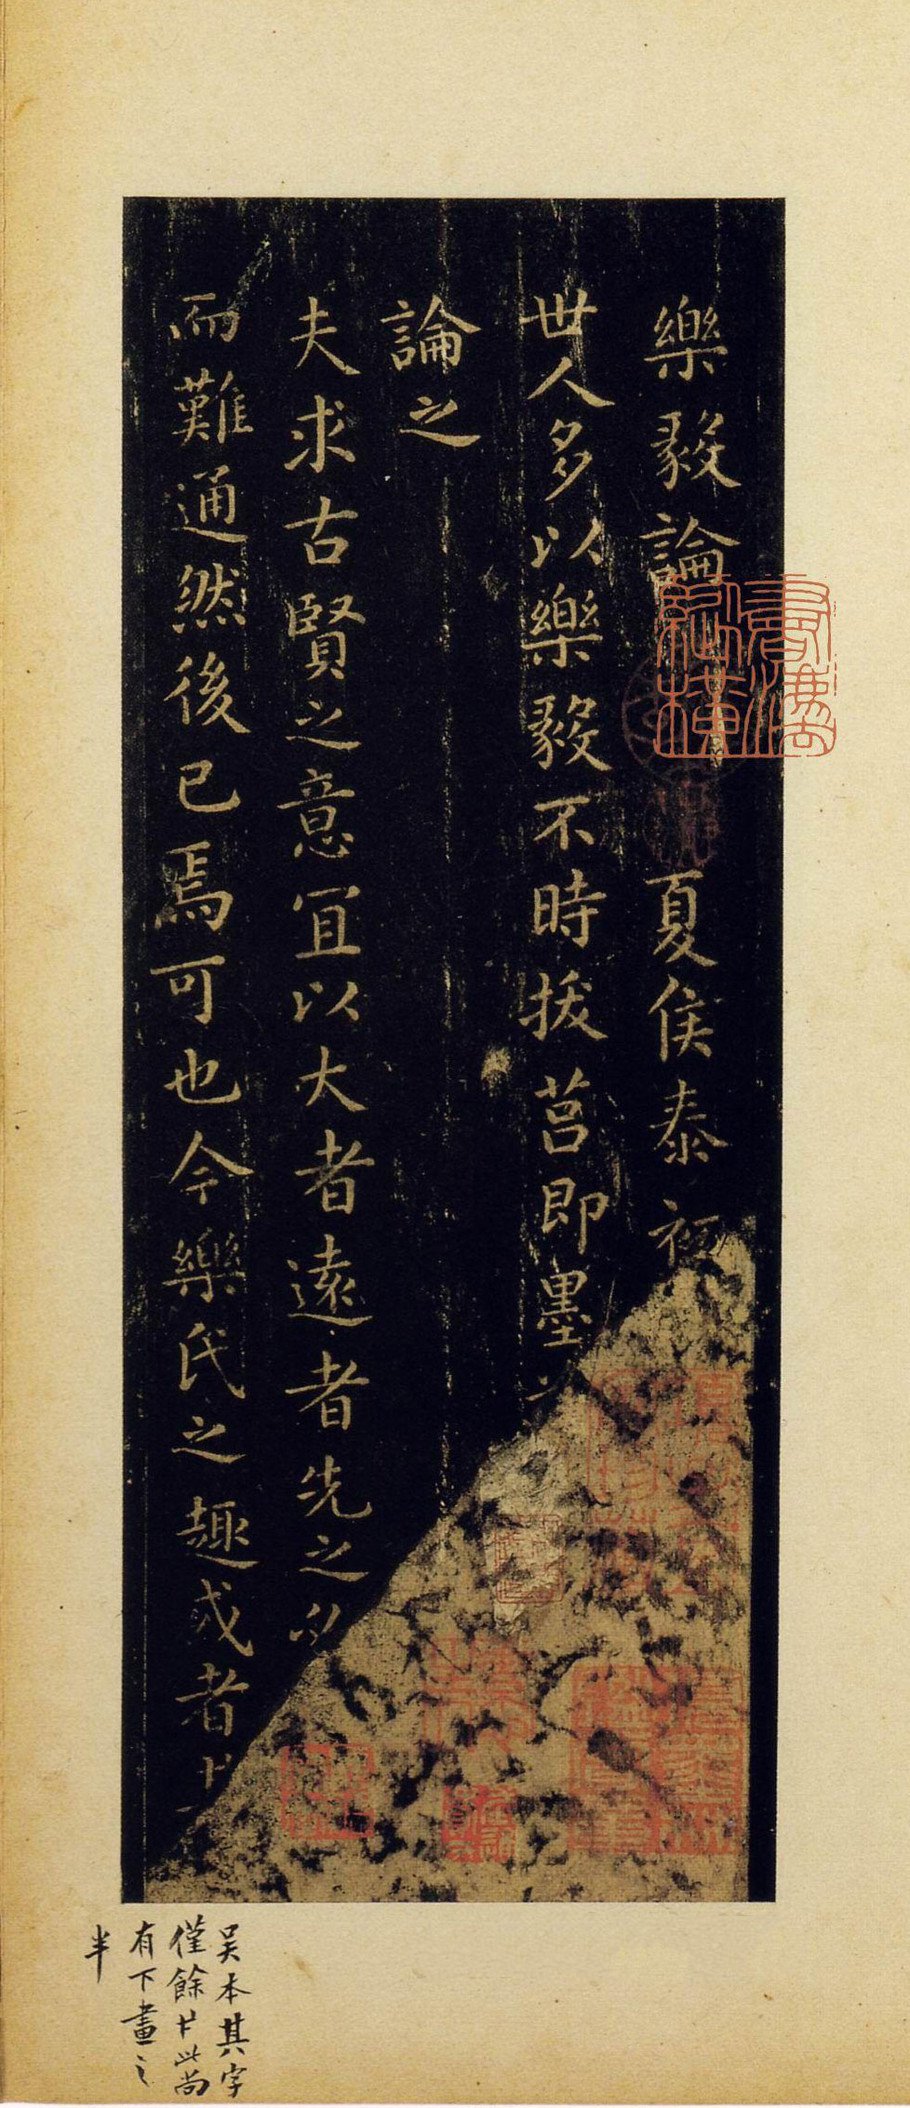 樂毅論 夏侯泰初
世人多以樂毅不時拔莒即墨
論之
夫求古賢之意宜以大者遠者先之必
而難通然後已焉可也今樂氏之趣或者
吳本其字
僅餘 此尚
有下畫之
半